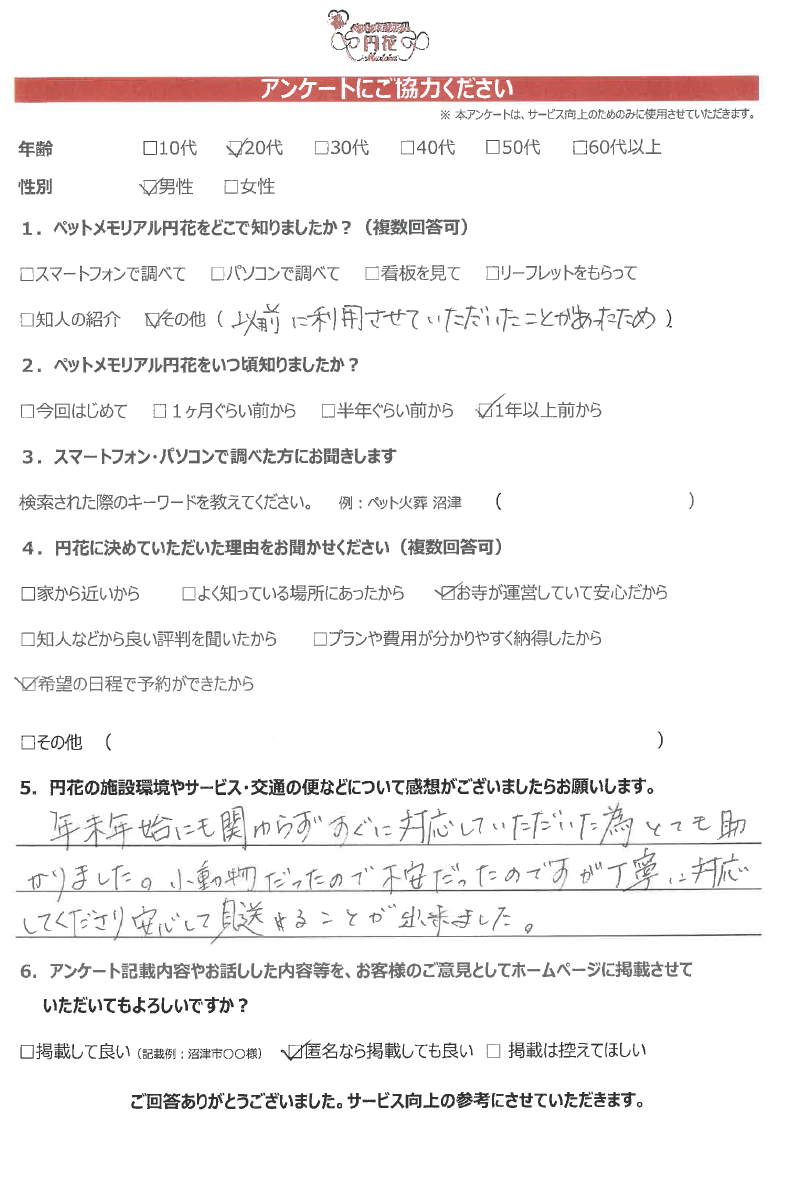 円花
アンケートにご協力ください
※ 本アンケートは、サービス向上のためのみに使用させていただきます。
年齢 □10代 ☑20代 □30代 □40代 □50代 □60代以上
性別 ☑男性 □女性
1．ペットメモリアル円花をどこで知りましたか？（複数回答可）
□スマートフォンで調べて □パソコンで調べて □看板を見て □リーフレットをもらって
□知人の紹介 ☑その他（以前に利用させていただいたことがあったため）
2．ペットメモリアル円花をいつ頃知りましたか？
□今回はじめて □1ヶ月ぐらい前から □半年ぐらい前から ☑1年以上前から
3．スマートフォン・パソコンで調べた方にお聞きします
検索された際のキーワードを教えてください。 例：ペット火葬 沼津 （ ）
4．円花に決めていただいた理由をお聞かせください（複数回答可）
□家から近いから □よく知っている場所にあったから ☑お寺が運営していて安心だから
□知人などから良い評判を聞いたから □プランや費用が分かりやすく納得したから
☑希望の日程で予約ができたから
□その他 （ ）
5．円花の施設環境やサービス・交通の便などについて感想がございましたらお願いします。
年末年始にも関わらずすぐに対応していただいた為とても助
かりました。小動物だったので不安だったのですが丁寧に対応
してくださり安心して見送ることが出来ました。
6．アンケート記載内容やお話しした内容等を、お客様のご意見としてホームページに掲載させて
いただいてもよろしいですか？
□掲載して良い（記載例：沼津市〇〇様） ☑匿名なら掲載しても良い □ 掲載は控えてほしい
ご回答ありがとうございました。サービス向上の参考にさせていただきます。